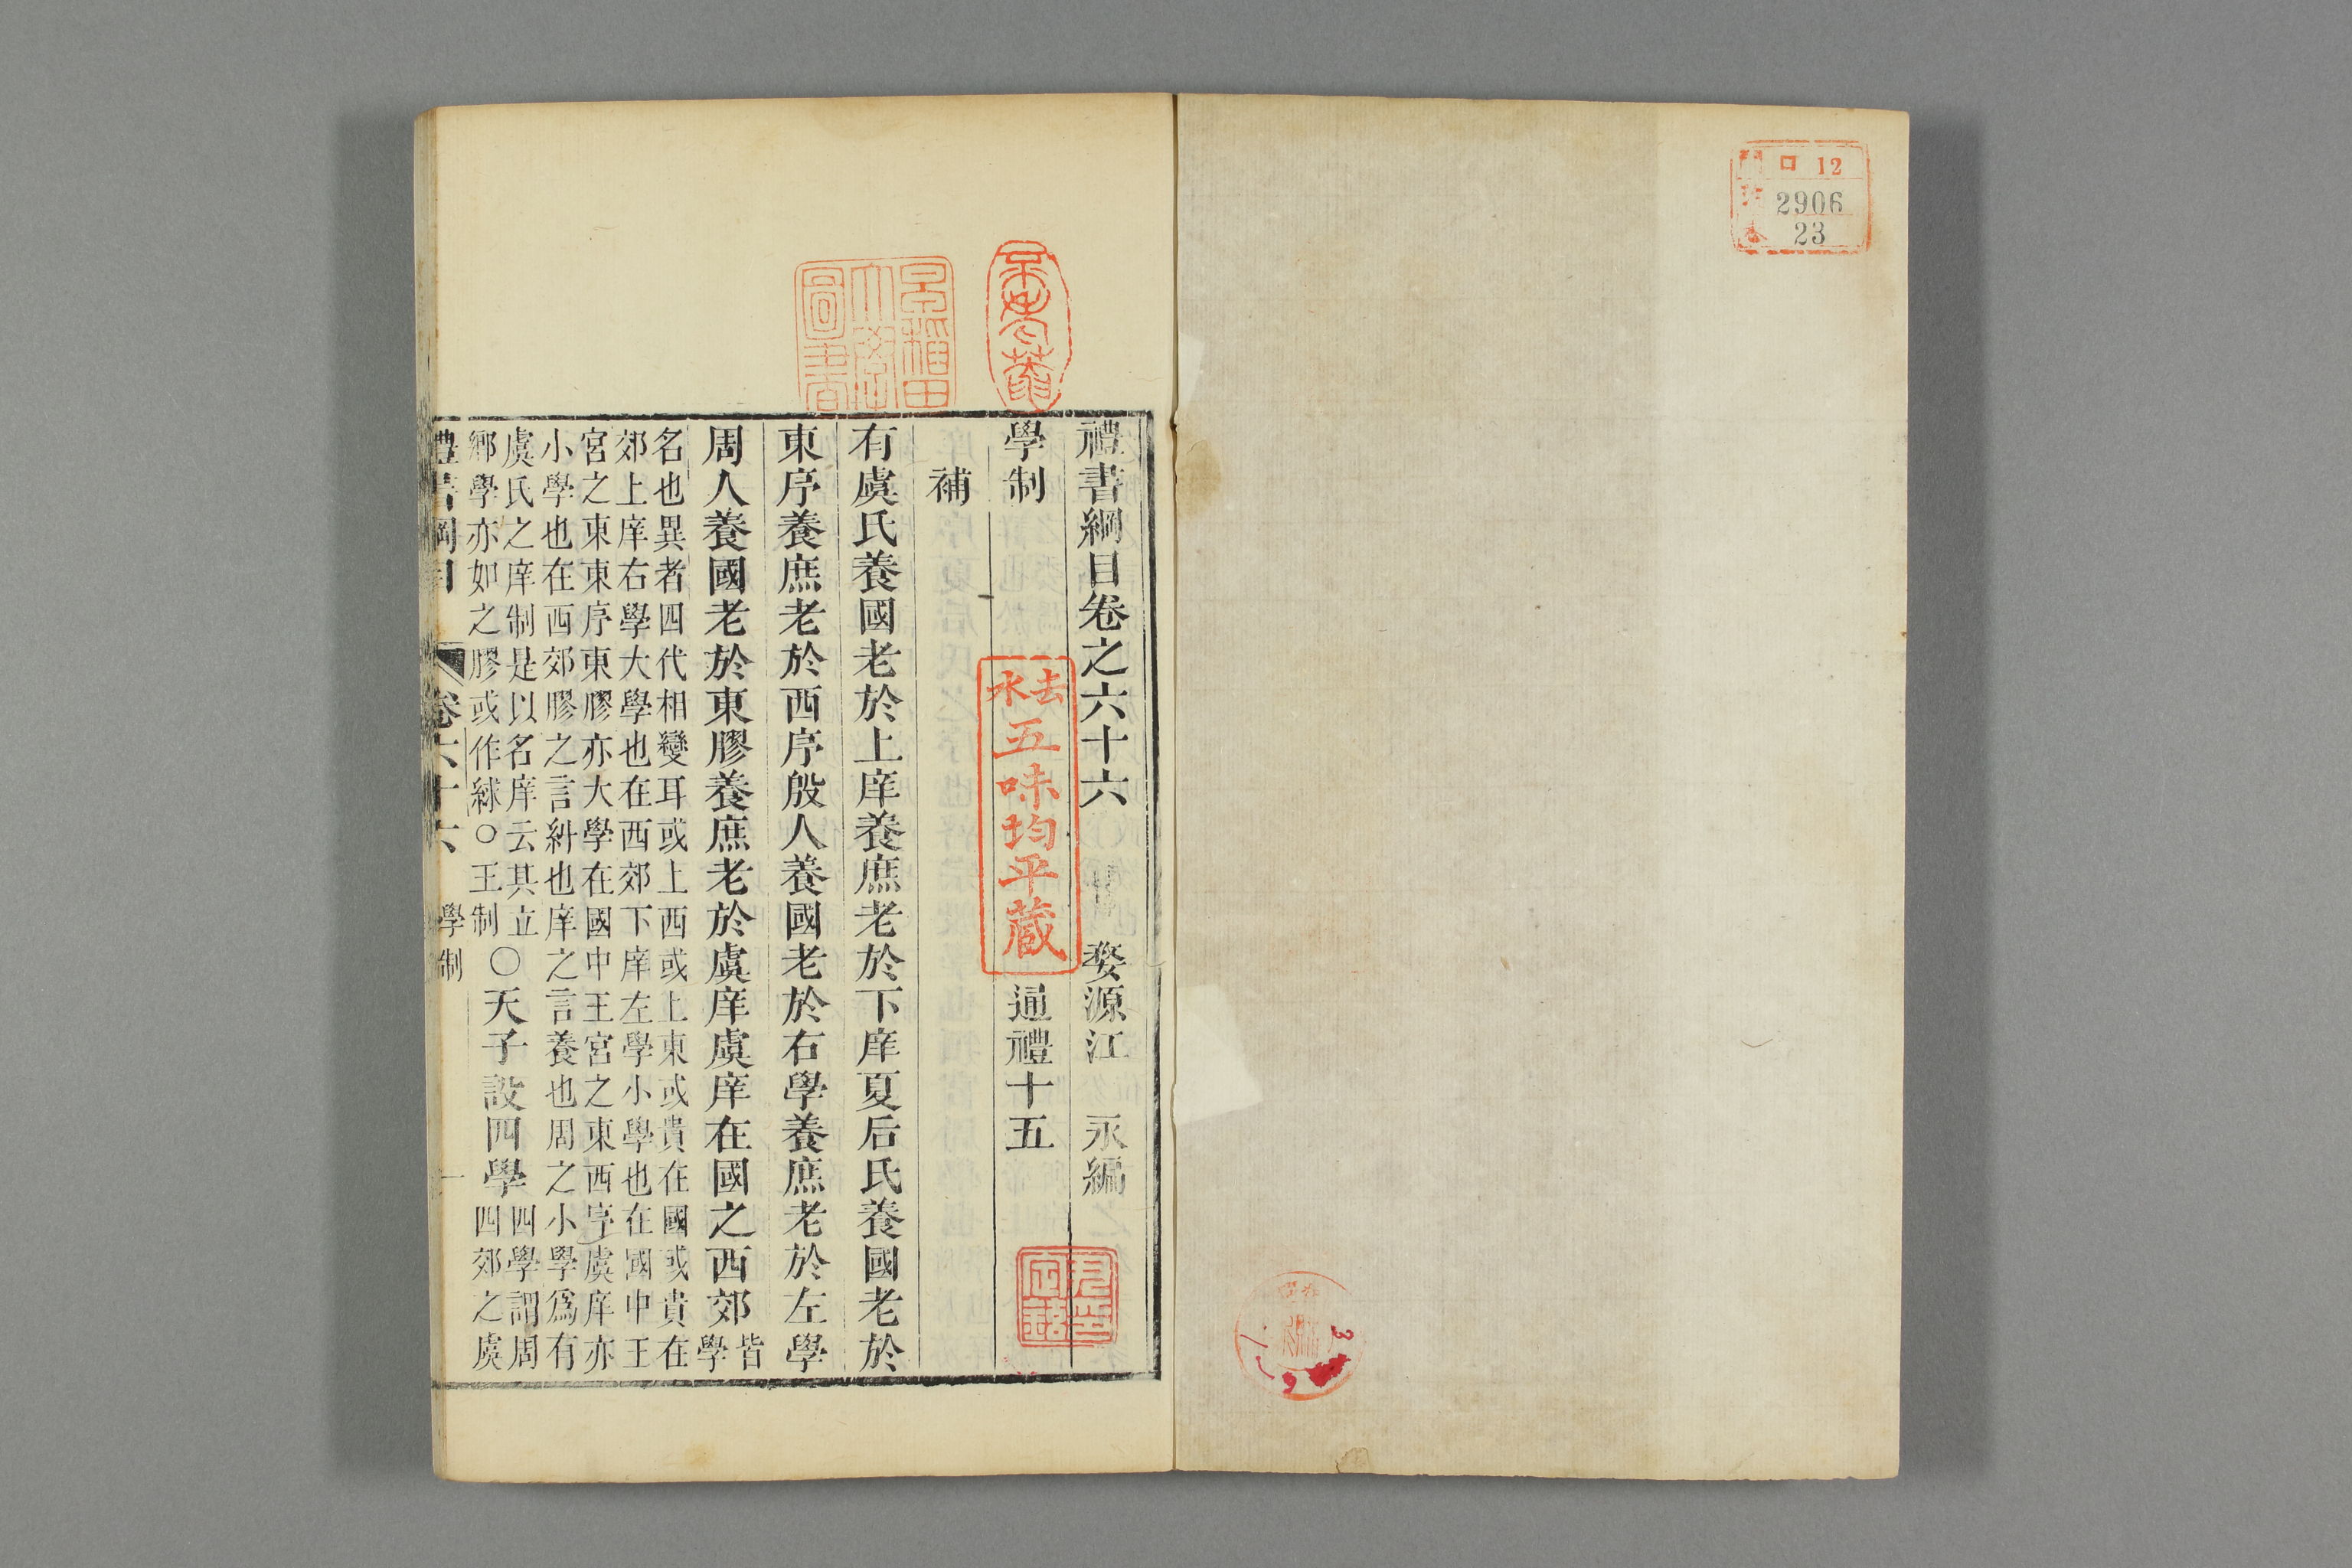 ロ 12
2906
23
禮書綱目卷之六十六
婺源江 永編
學制
通禮十五
補
有虞氏養國老於上庠養庶老於下庠夏后氏養國老於
東序養庶老於西序殷人養國老於右學養庶老於左學
周人養國老於東膠養庶老於虞庠虞庠在國之西郊
皆
學
名也異者四代相變耳或上西或上東或貴在國或貴在
郊上庠右學大學也在西郊下庠左學小學也在國中王
宮之東東序東膠亦大學在國中王宮之東西序虞庠亦
小學也在西郊膠之言糾也庠之言養也周之小學爲有
虞氏之庠制是以名庠云其立
鄉學亦如之膠或作絿○王制
○天子設四學
四學謂周
四郊之虞
禮書綱目
卷六十六
學制
一
去水
五味均平藏
早稻田
大學
圖書